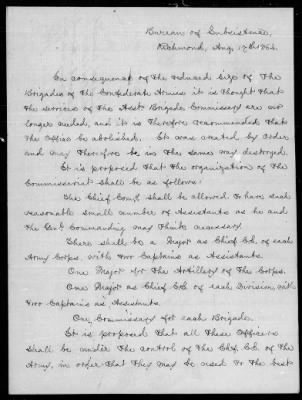 Bureau of Subsistence,
Richmond, Aug. 17th 1864.
In consequence of the reduced size of the
Brigades of the Confederate Armies it is thought that
the services of the Asst. Brigade Commissary are no
longer needed, and it is therefore recommended that
the Office be abolished. It was created by order
and may therefore be in the same way destroyed.
It is proposed that the organization of the
Commissariat shall be as follows:
The Chief Com'y. shall be allowed to have such
reasonable small number of Assistants as he and
the Gen'l Commanding may think necessary.
There shall be a Major as Chief CS. of each
Army Corps, with two Captains as Assistants.
One Major for the Artillery of the Corps.
One Major as Chief CS. of each Division, with
two Captains as Assistants.
One Commissary for each Brigade.
It is proposed that all these Officers
shall be under the control of the Chf. CS. of the
Army, in order that they may be used to the best